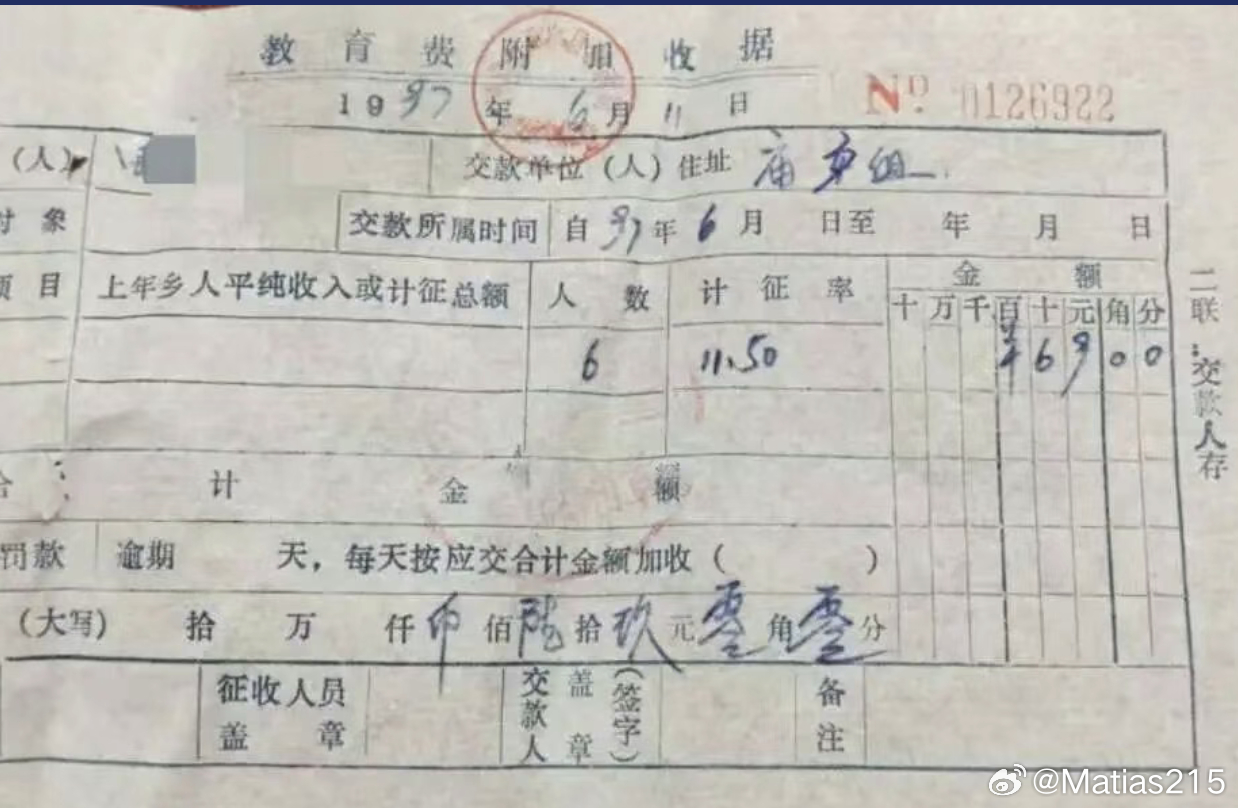 教育费附加收据
1997年6月11日 № 0126922
(人) 交款单位(人)住址 庙东组
对象 交款所属时间 自97年6月 日至 年 月 日
项目 上年乡人平纯收入或计征总额 人数 计征率 金额
十万千百十元角分
6 11.50 ¥6900
合计金额
罚款 逾期 天,每天按应交合计金额加收( )
(大写) 拾 万 仟 币 佰 陆 拾 玖 元 零 角 零 分
征收人员盖章 交款人盖章(签字) 备注
二联:交款人存
@Matias215